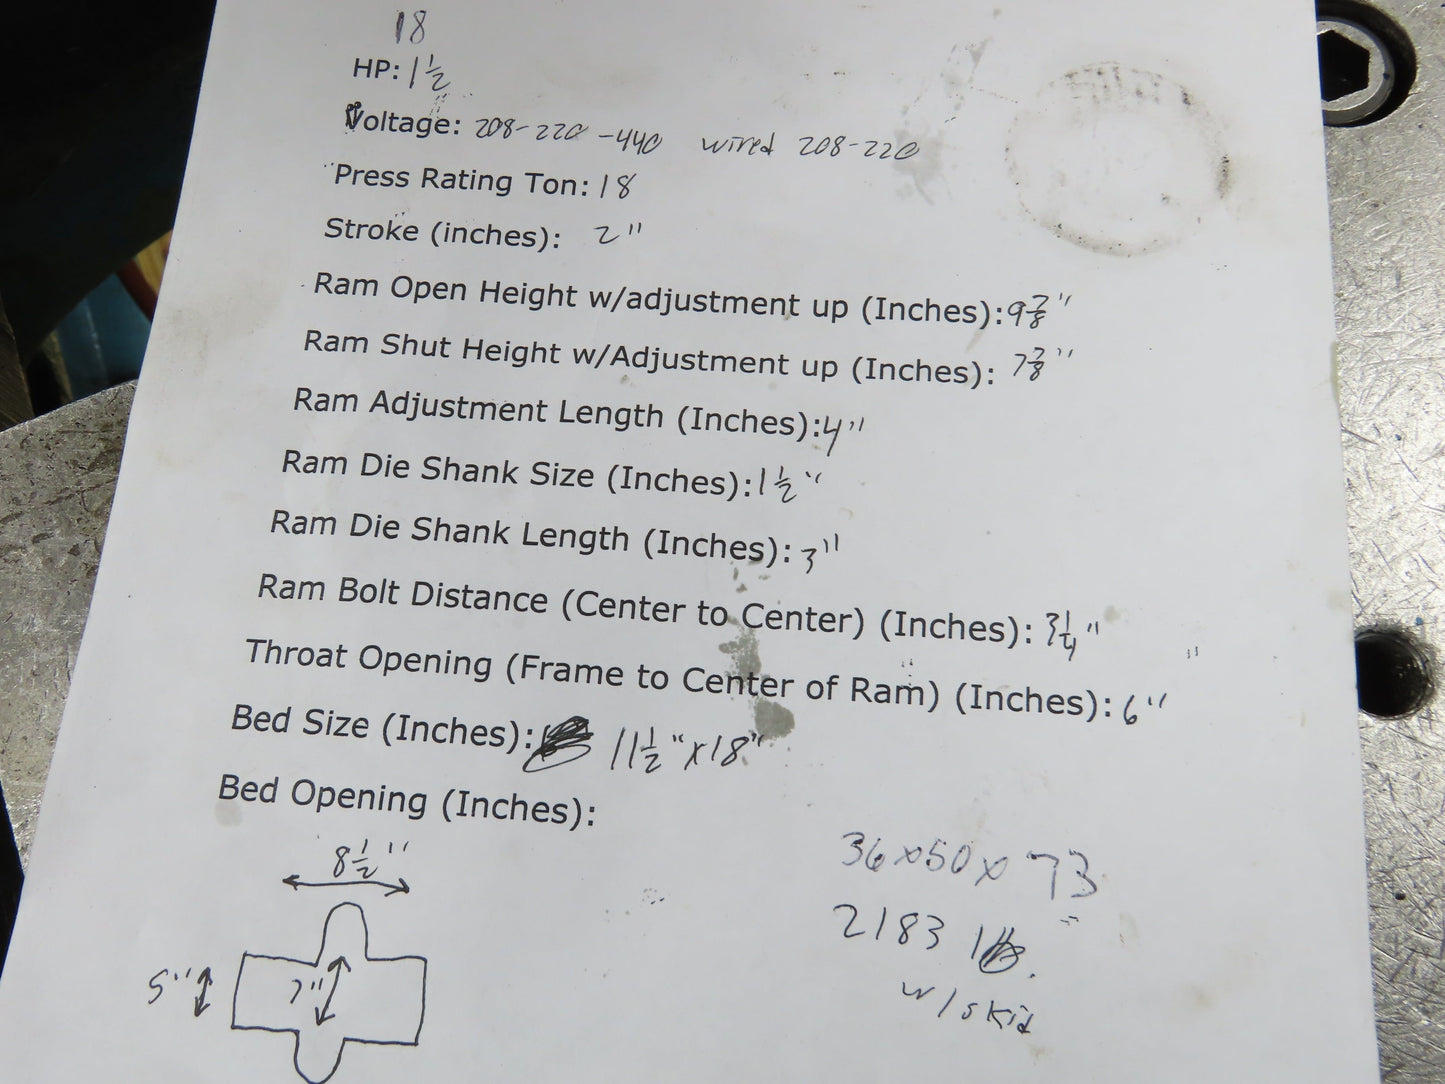 18
HP: 1 1/2
Voltage: 208-220-440 wired 208-220
Press Rating Ton: 18
Stroke (inches): 2"
Ram Open Height w/adjustment up (Inches): 9 7/8"
Ram Shut Height w/Adjustment up (Inches): 7 7/8"
Ram Adjustment Length (Inches): 4"
Ram Die Shank Size (Inches): 1 1/2"
Ram Die Shank Length (Inches): 3"
Ram Bolt Distance (Center to Center) (Inches): 3 1/4"
Throat Opening (Frame to Center of Ram) (Inches): 6"
Bed Size (Inches): 11 1/2" x 18"
Bed Opening (Inches):
8 1/2"
5"
7"
36x50x73
2183 lb.
w/skid